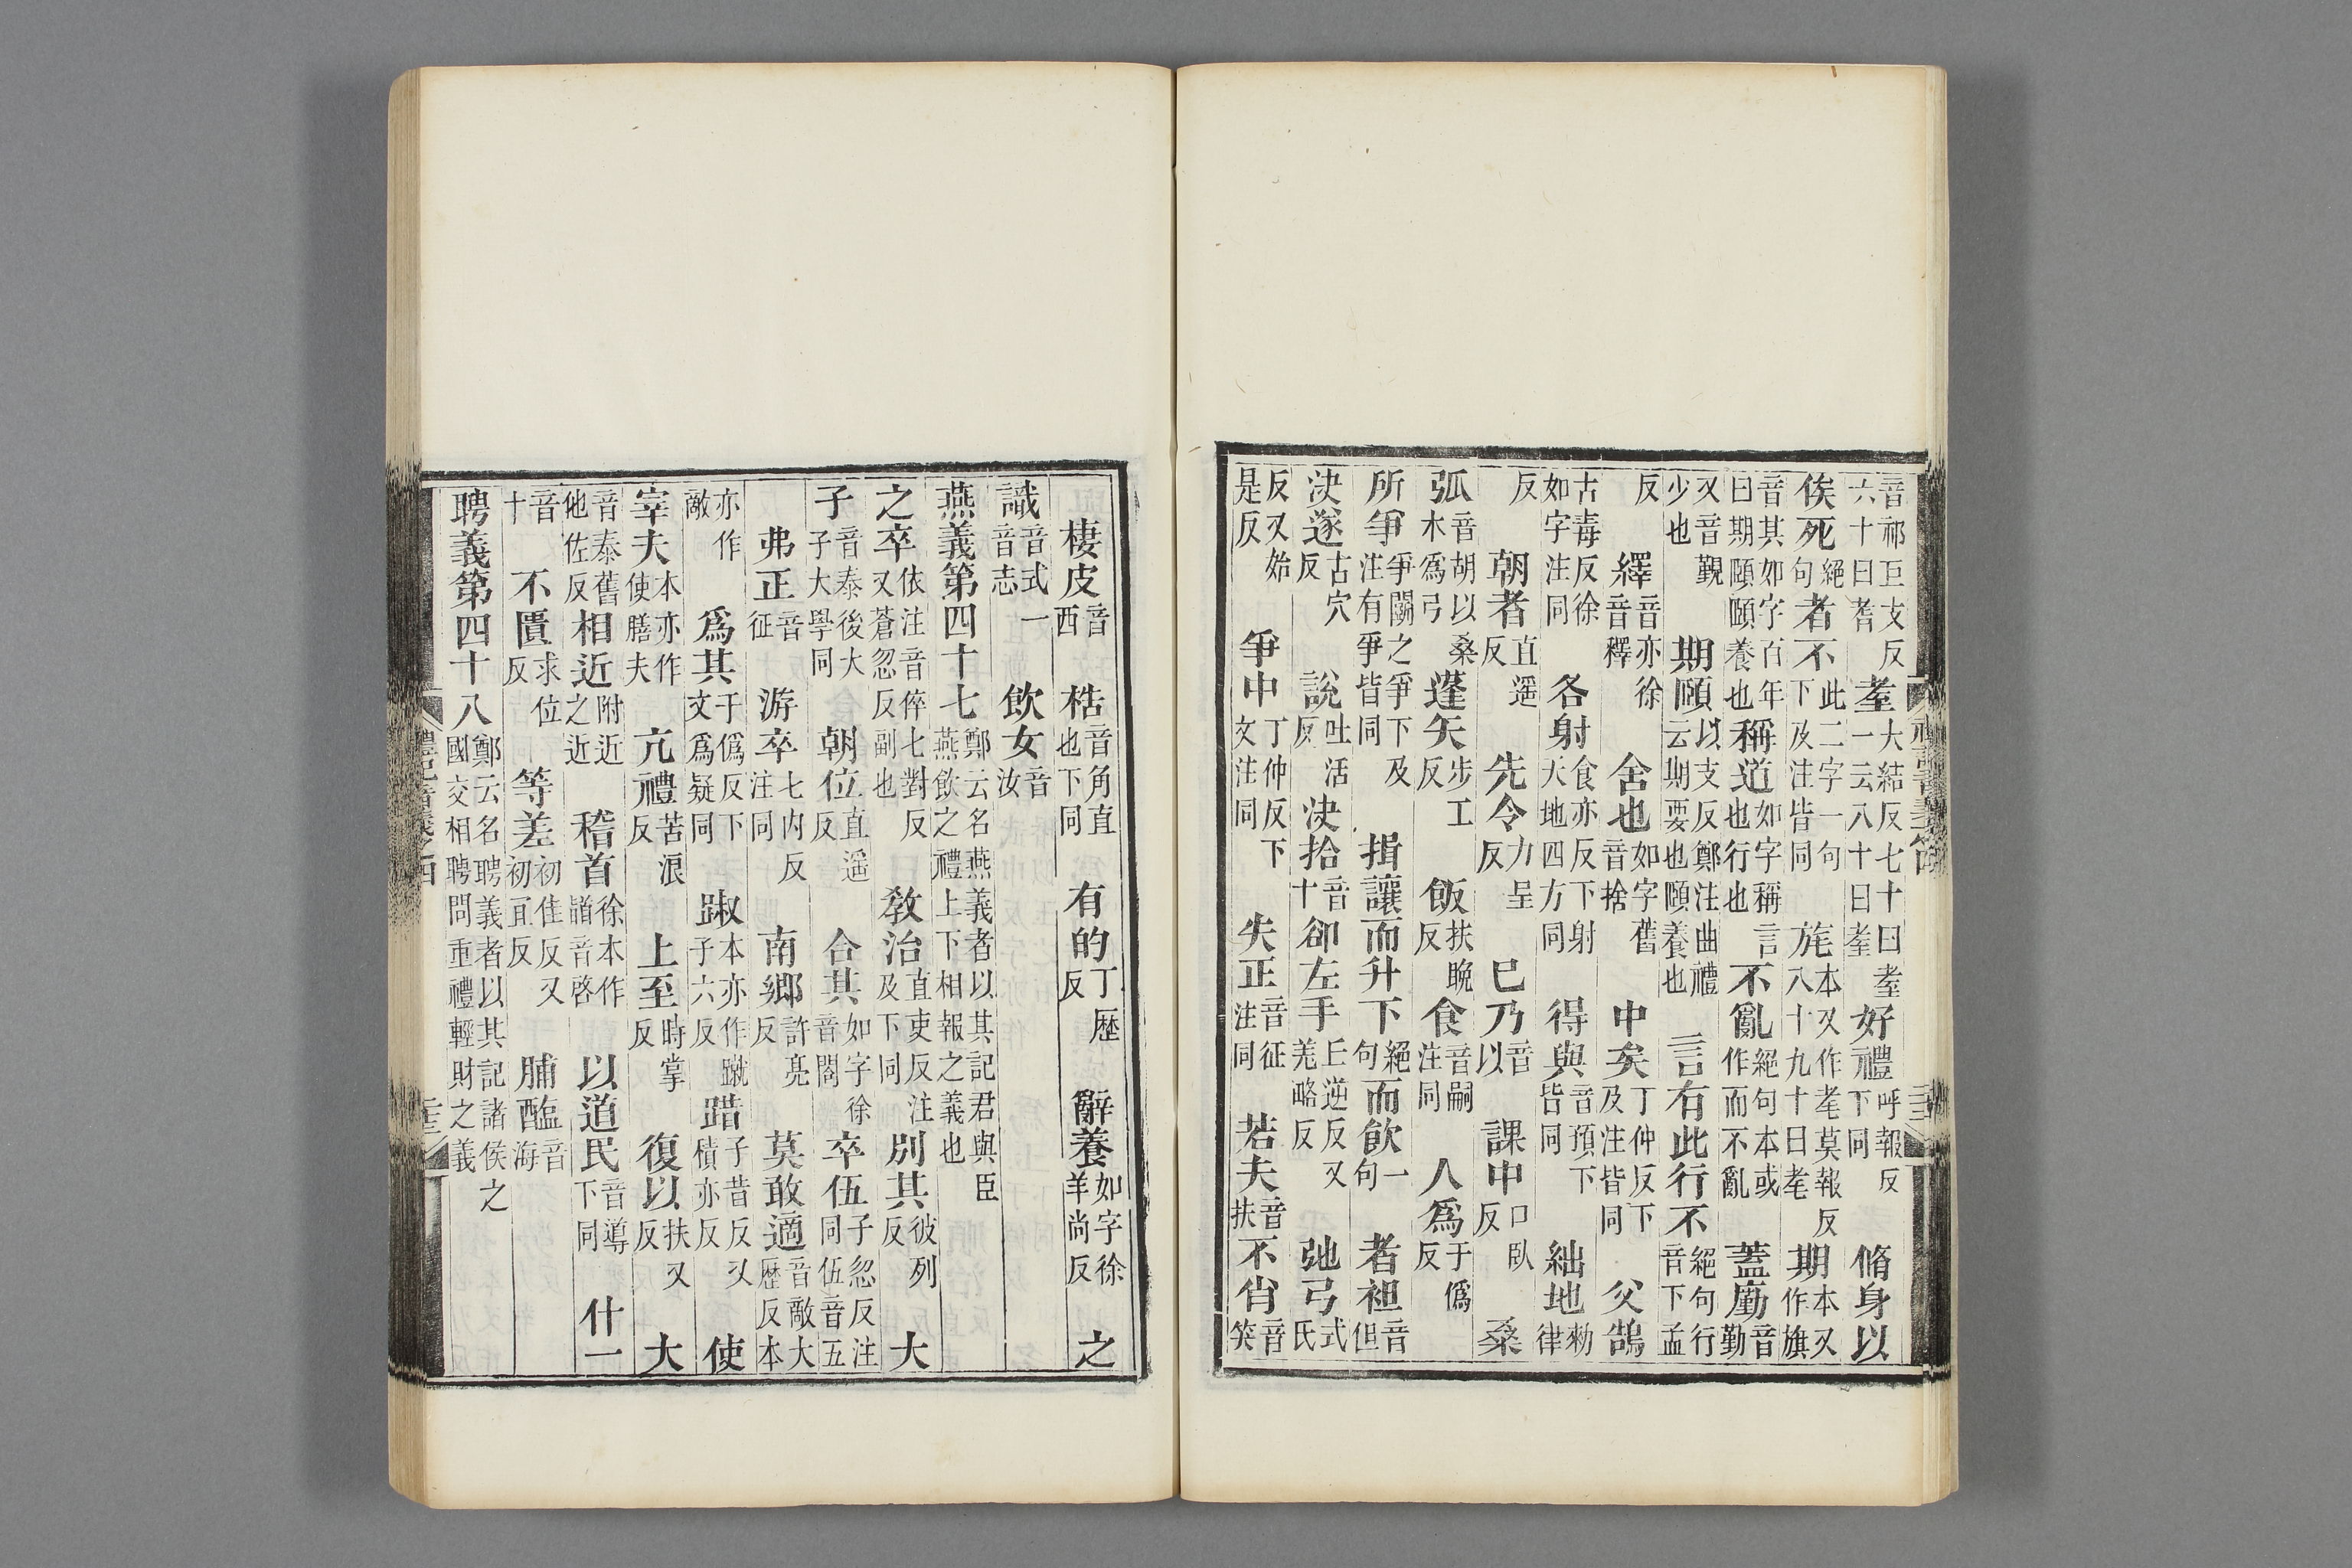 音祁巨支反六十曰耆耋大結反七十曰耋一云八十曰耋好禮呼報反下同脩身以
俟死絕句者不此二字一句下及注皆同旄本又作耄莫報反八十九十曰耄期本又作旗
音其如字百年曰期頤頤養也稱道如字稱言也行也不亂絕句本或作而不亂蓋廑音勤
又音覲少也期頤以支反鄭注曲禮云期要也頤養也言有此行不絕句行音下孟
反繹音亦徐音釋舍也如字舊音捨中矣丁仲反下及注皆同父鵠
古毒反徐如字注同各射食亦反下射天地四方同得與音預下皆同絀地勑律
反朝者直遥反先令力呈反巳乃音以課中口臥反桑
弧音胡以桑木爲弓蓬矢步工反飯扶晚反食音嗣注同人爲于僞反
所爭爭鬭之爭下及注有爭皆同揖讓而升下絕句而飲一句者袒音但
決遂古穴反說吐活反決拾音十卻左手丘逆反又羌略反弛弓式氏
反又始是反爭中丁仲反下文注同失正音征注同若夫音扶不肖音笑
棲皮音西梏音角直也下同有的丁歷反辭養如字徐羊尚反之
識音式一音志飲女音汝
燕義第四十七鄭云名燕義者以其記君與臣燕飲之禮上下相報之義也
之卒依注音倅七對反又蒼忽反副也教治直吏反注及下同別其彼列反大
子音泰後大子大學同朝位直遥反合其如字徐音閤卒伍子忽反注同伍音五
弗正音征游卒七内反注同南鄉許亮反莫敢適音敵大歷反本
亦作敵爲其于僞反下文爲疑同踧本亦作蹴子六反踖子昔反又積亦反使
宰夫本亦作使膳夫亢禮苦浪反上至時掌反復以扶又反大
音泰舊他佐反相近附近之近稽首徐本作䭫音啓以道民音導下同什一
音十不匱求位反等差初佳反又初宜反脯醢音海
聘義第四十八鄭云名聘義者以其記諸侯之國交相聘問重禮輕財之義